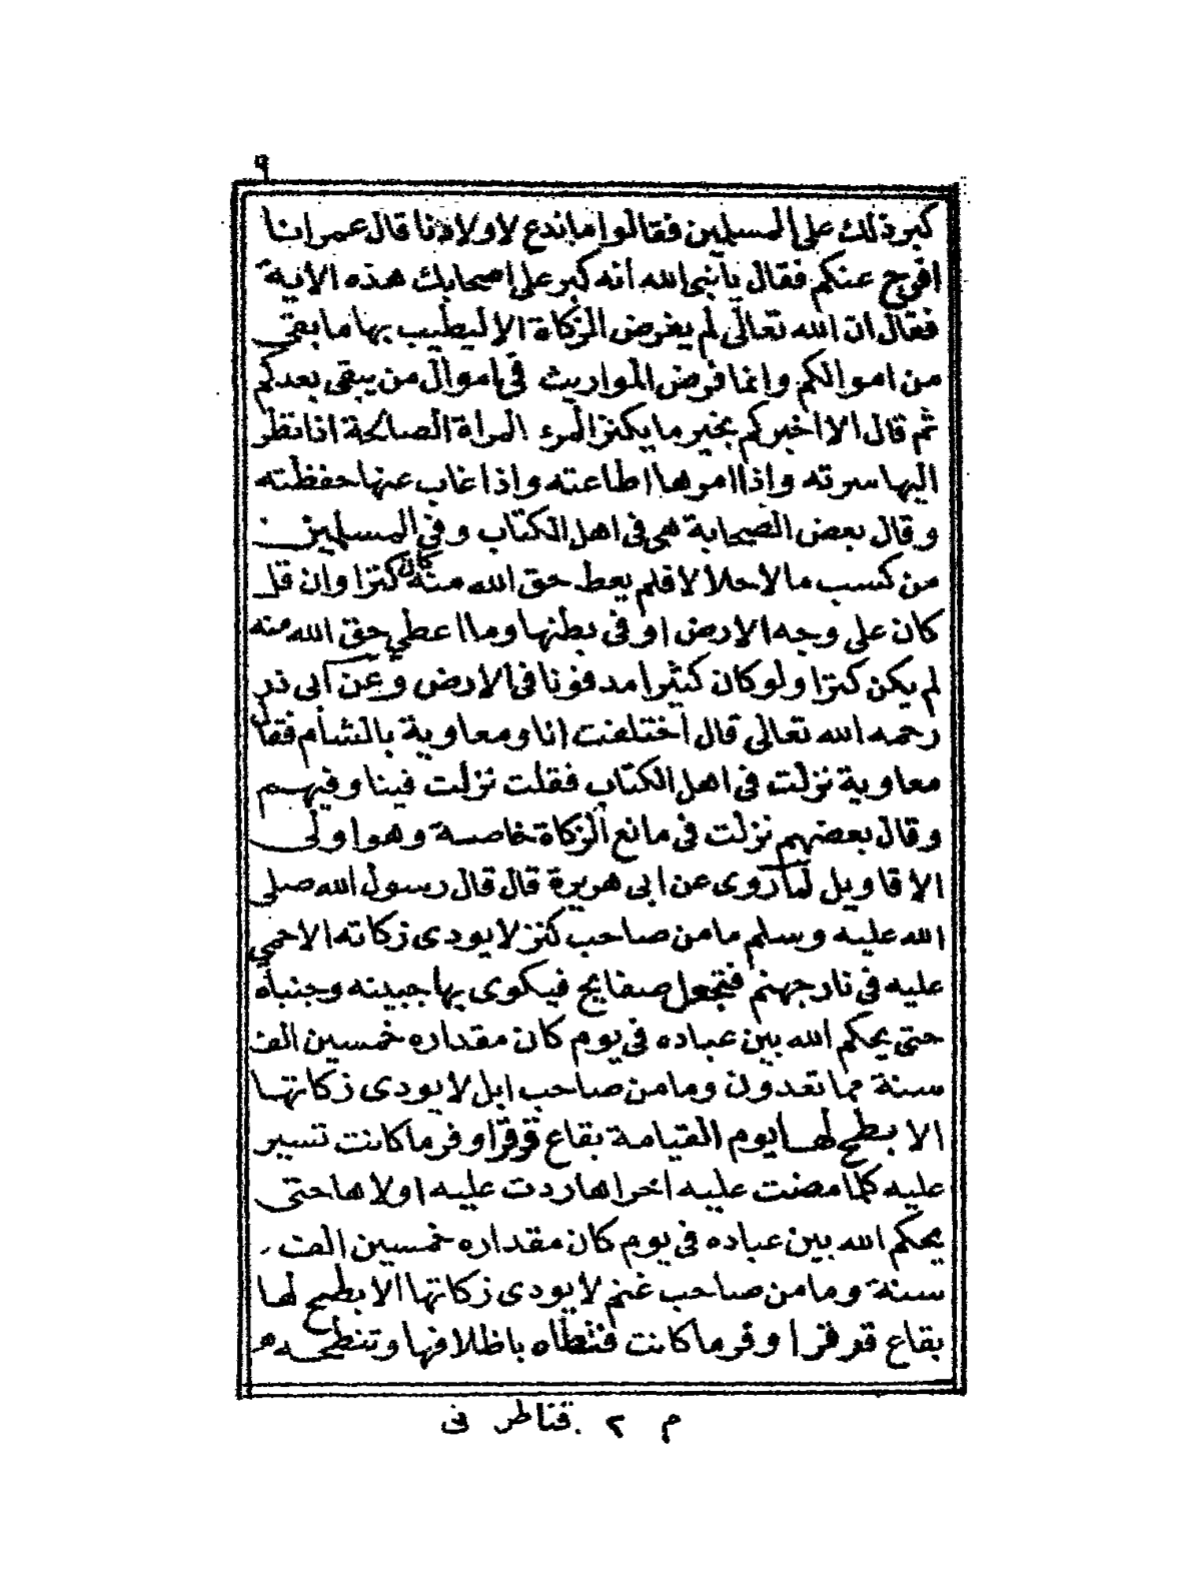 ٩
كبر ذلك على المسلمين فقالوا ما ندع لاولادنا قال عمر انا
افرج عنكم فقال يا نبي الله انه كبر على اصحابك هذه الاية
فقال ان الله تعالى لم يفرض الزكاة الا ليطيب بها ما بقى
من اموالكم وانما فرض المواريث في اموال من يبقى بعدكم
ثم قال الا اخبركم بخير ما يكنز المرء المراة الصالحة اذا نظر
اليها سرته واذا امرها اطاعته واذا غاب عنها حفظته
وقال بعض الصحابة هي في اهل الكتاب وفي المسلمين
من كسب مالا حلالا فلم يعط حق الله منه كان كنزا وان قل
كان على وجه الارض او في بطنها وما اعطي حق الله منه
لم يكن كنزا ولو كان كثيرا مدفونا في الارض وعن ابي ذر
رحمه الله تعالى قال اختلفت انا ومعاوية بالشام فقال
معاوية نزلت في اهل الكتاب فقلت نزلت فينا وفيهم
وقال بعضهم نزلت في مانع الزكاة خاصة وهو اولى
الاقاويل لما روى عن ابي هريرة قال قال رسول الله صلى
الله عليه وسلم ما من صاحب كنز لا يودى زكاته الا حمي
عليه في نار جهنم فتجعل صفايح فيكوى بها جبينه وجنباه
حتى يحكم الله بين عباده في يوم كان مقداره خمسين الف
سنة مما تعدون وما من صاحب ابل لا يودى زكاتها
الا بطح لها يوم القيامة بقاع قرقرا وفر ما كانت تسير
عليه كلما مضت عليه اخراها ردت عليه اولاها حتى
يحكم الله بين عباده في يوم كان مقداره خمسين الف
سنة وما من صاحب غنم لا يودى زكاتها الا بطح لها
بقاع قرقرا وفر ما كانت فتطاه باظلافها وتنطحه
م ٢ قناطر في